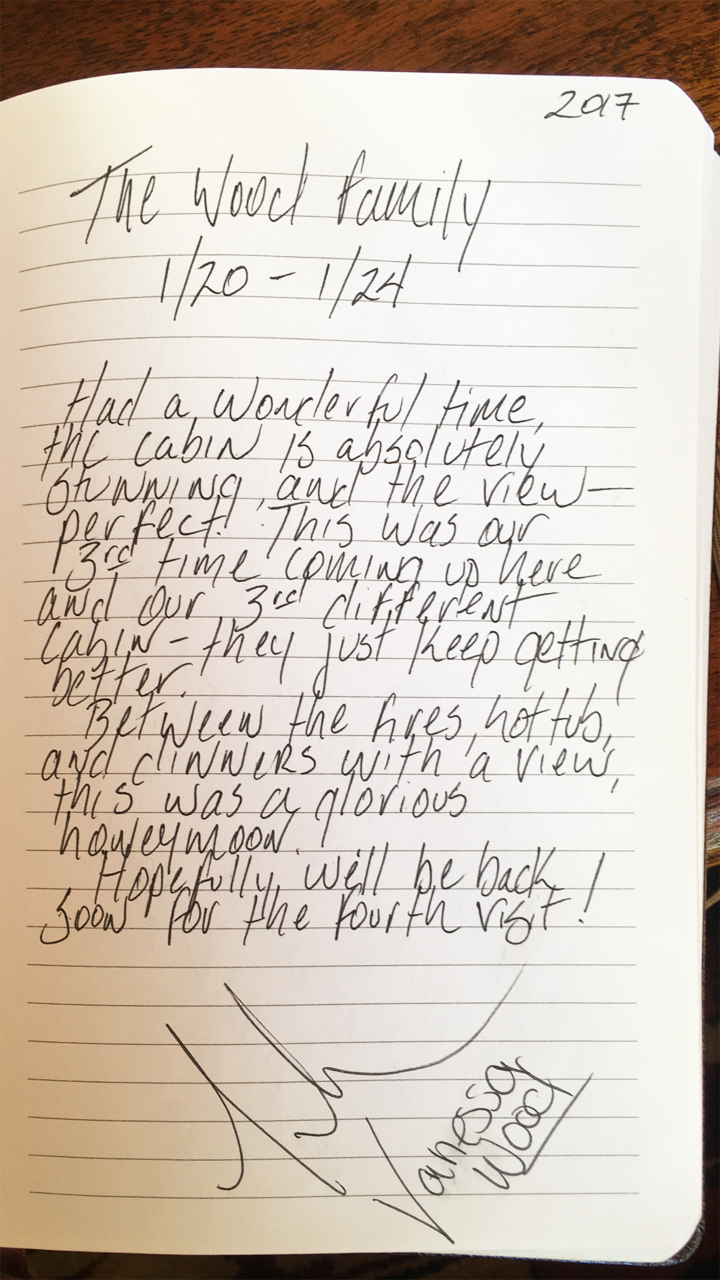 2017
The Wood Family
1/20 - 1/24
Had a wonderful time,
the cabin is absolutely
stunning, and the view—
perfect! This was our
3rd time coming up here
and our 3rd different
cabin - they just keep getting
better.
Between the fires, hot tub,
and dinners with a view,
this was a glorious
honeymoon.
Hopefully, we'll be back
soon for the fourth visit!
Vanessa
Wood